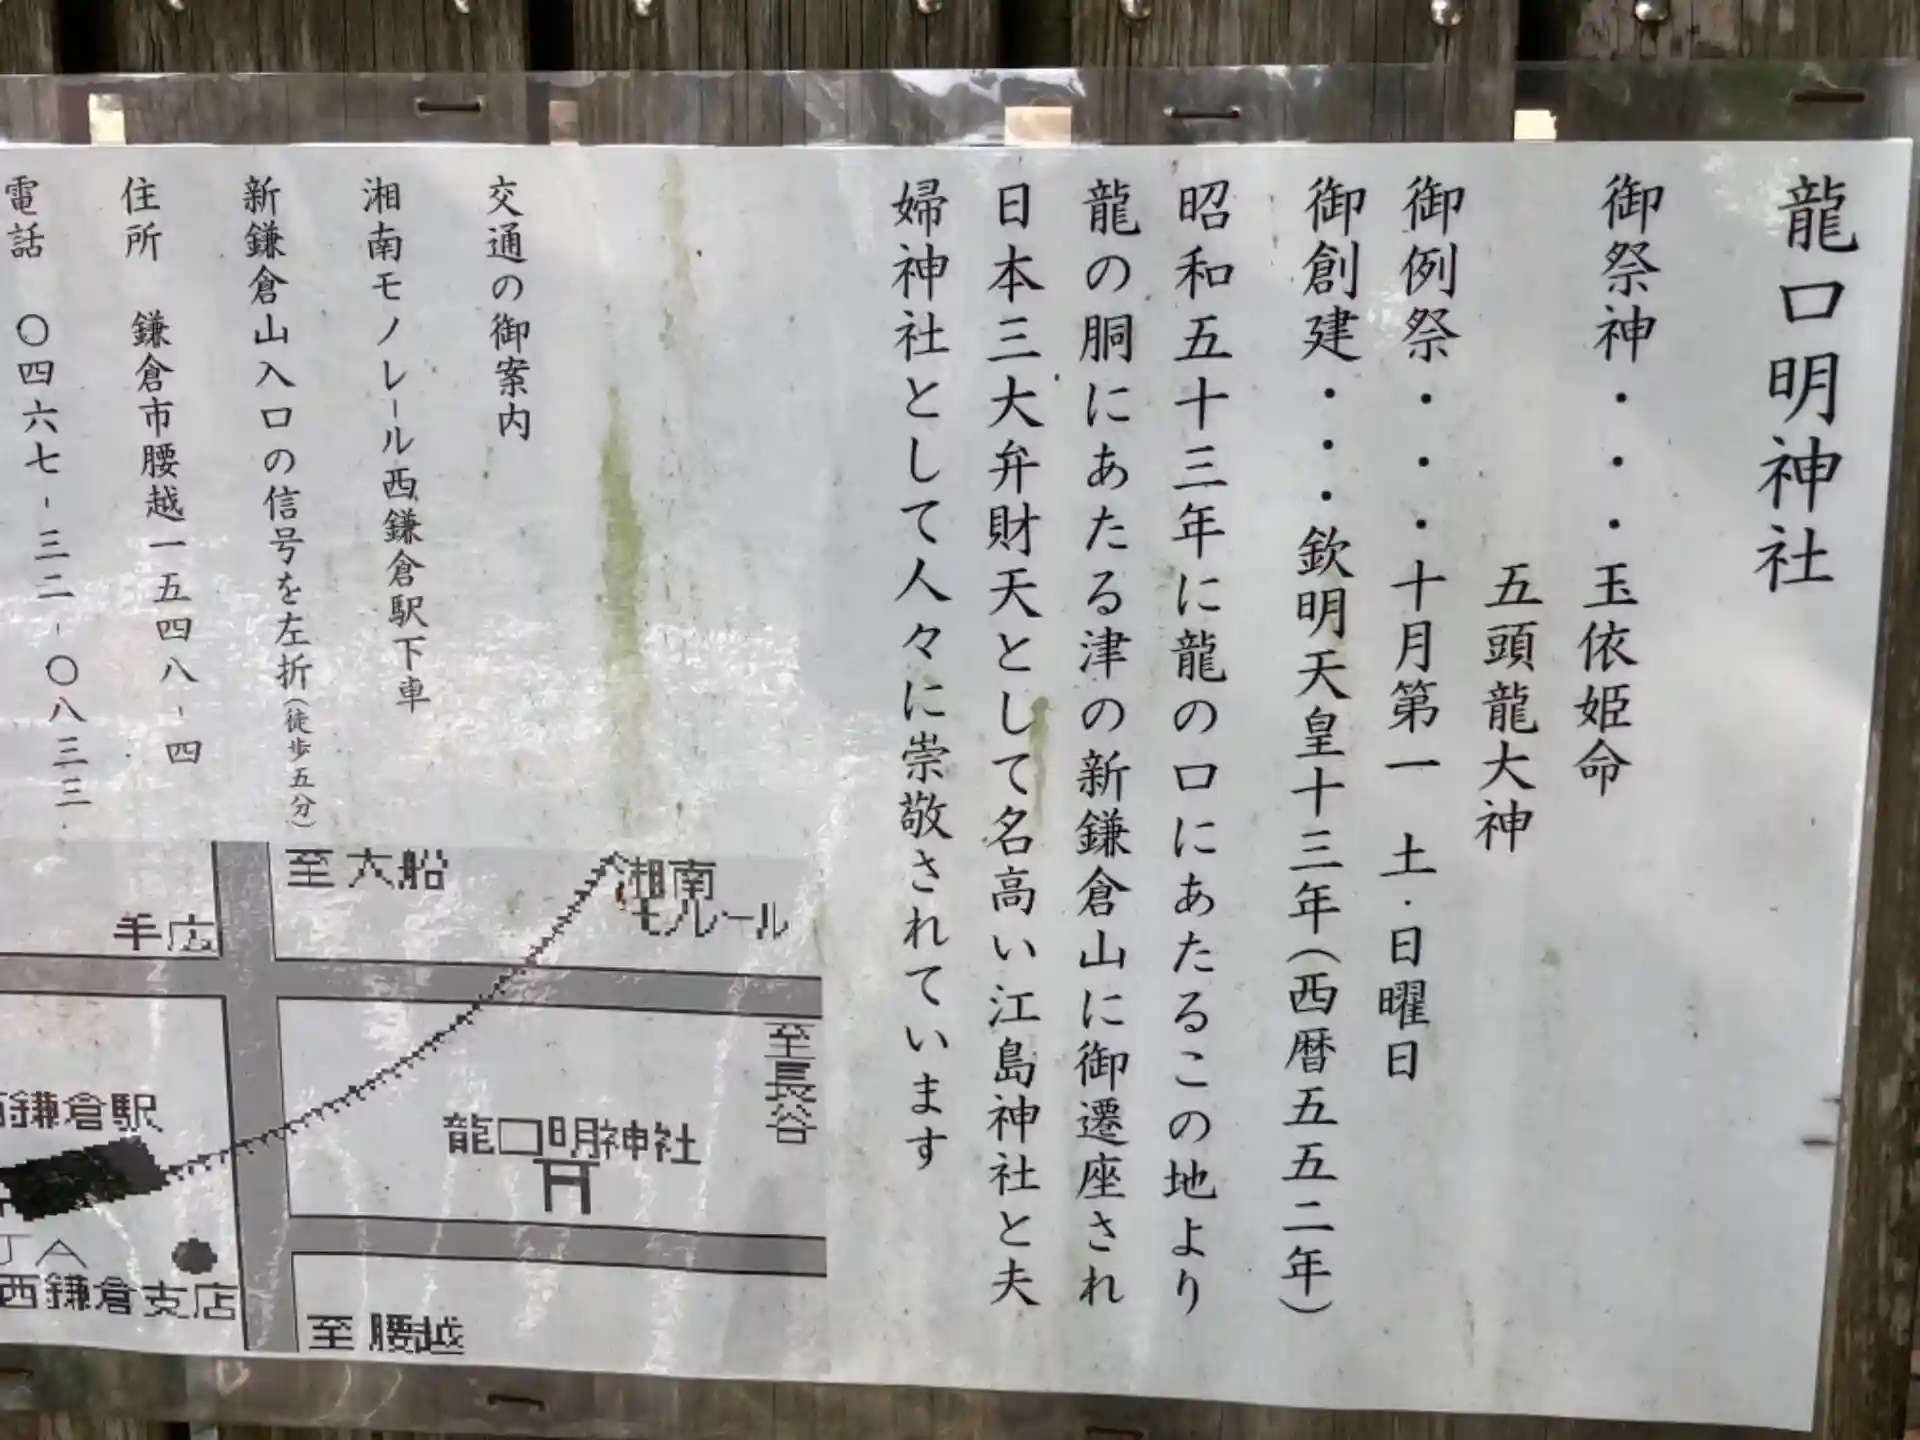 龍口明神社
御祭神・・・玉依姫命
五頭龍大神
御例祭・・・十月第一 土・日曜日
御創建・・・欽明天皇十三年(西暦五五二年)
昭和五十三年に龍の口にあたるこの地より
龍の胴にあたる津の新鎌倉山に御遷座され
日本三大弁財天として名高い江島神社と夫
婦神社として人々に崇敬されています
交通の御案内
湘南モノレール西鎌倉駅下車
新鎌倉山入口の信号を左折(徒歩五分)
住所 鎌倉市腰越一五四八-四
電話 〇四六七-三二-〇八三三
至大船
湘南
モルール
手広
至長谷
西鎌倉駅
龍口明神社
JA
西鎌倉支店
至腰越